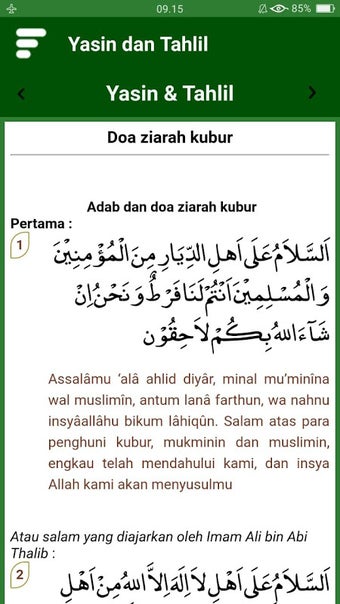 09.15 85%
Yasin dan Tahlil
Yasin & Tahlil
Doa ziarah kubur
Adab dan doa ziarah kubur
Pertama :
1
اَلسَّلاَمُ عَلَى اَهلِ الدِّيَارِ مِنَ الْمُؤْمِنِيْنَ
وَالْمُسْلِمِيْنَ اَنْتُمْ لَنَا فَرْطٌ وَنَحْنُ اِنْ
شَاءَ اللهُ بِكُمْ لاَحِقُوْن
Assalâmu ‘alâ ahlid diyâr, minal mu’minîna
wal muslimîn, antum lanâ farthun, wa nahnu
insyâallâhu bikum lâhiqûn. Salam atas para
penghuni kubur, mukminin dan muslimin,
engkau telah mendahului kami, dan insya
Allah kami akan menyusulmu
Atau salam yang diajarkan oleh Imam Ali bin Abi
Thalib :
2
اَلسَّلاَمُ عَلَى اَهْلِ لاَ اِلَهَ اِلاَّ اللهُ مِنْ اَهْلِ